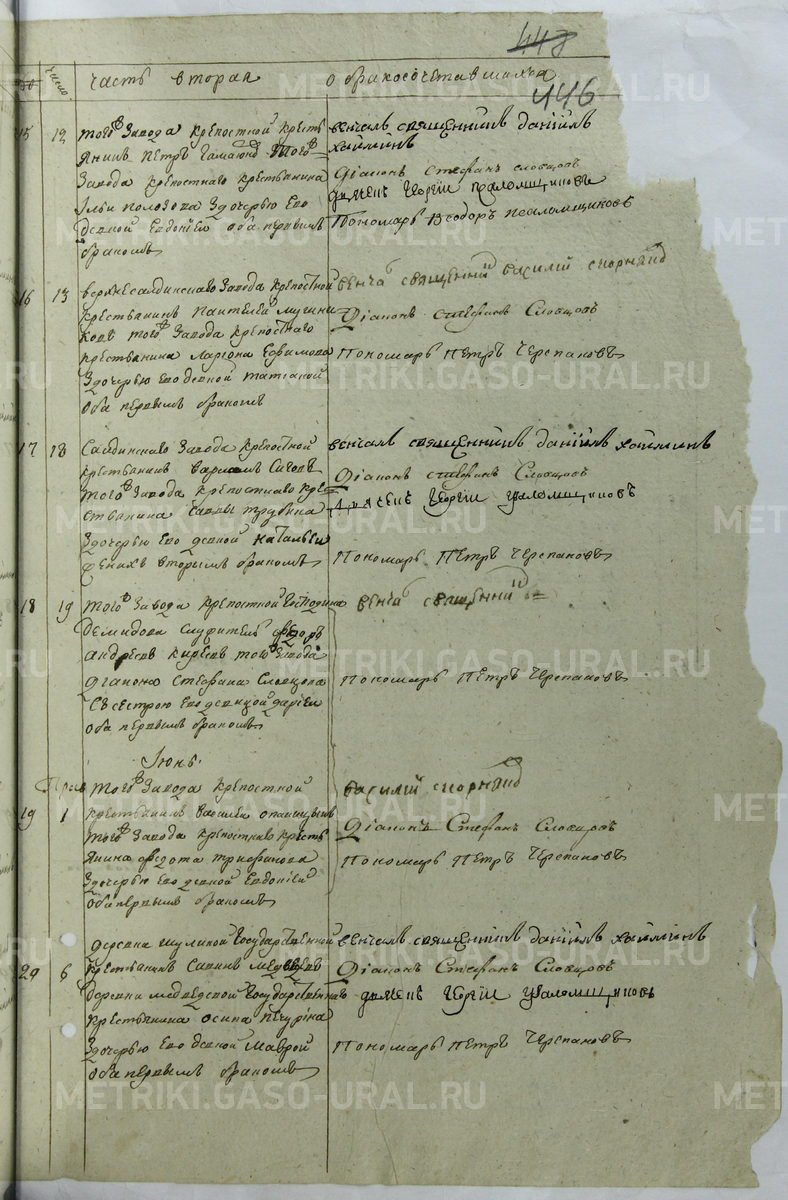 448
446
Число
часть вторая
о бракосочетавшихся
15 12 того Завода крепостной кресть
янинъ Петръ того
Завода крепостнаго крестьянина
Ильи полозова Здочерью Ево
девкой Евдокией оба первымъ
бракомъ
венчалъ священникъ данiилъ
хаймин
Дiаконъ Стефанъ словцовъ
дьячекъ Георгiй псаломщиковъ
Пономарь Ѳеодоръ псаломщиковъ
16 13 верхнесалдинскаго Завода крепостной
крестьянинъ Пантелей
того Завода крепостнаго
крестьянина Лариона Ефимова
Здочерью Ево девкой татьяной
оба первымъ бракомъ
венча священний василiй
Дiаконъ Стефанъ Словцовъ
Пономарь Петръ Черепановъ
17 18 Салдинскаго Завода крепостной
крестьянинъ Варламъ
того Завода крепостнаго кре
стьянина Саввы трубина
Здочерью Ево девкой Натальей
женихъ вторымъ бракомъ
венчалъ священникъ данiилъ хайминъ
Дiаконъ стефанъ Словцовъ
дьячекъ Георгiй псаломщиковъ
Пономарь Петръ Черепановъ
18 19 того Завода крепостной Господина
демидова служитель федоръ
андреевъ киреевъ того Завода
дiакона Стефана Словцова
съ сестрою Ево девицой дарiей
оба первымъ бракомъ
венча священний
Пономарь Петръ Черепановъ
Iюнь
того Завода крепостной
19 1 крестьянинъ Василей
того Завода крепостнаго кресть
янина федота трифанова
Здочерью Ево девкой Евдокией
оба первымъ бракомъ
василiй
Дiаконъ Стефанъ Словцовъ
Пономарь Петръ Черепановъ
деревни шуминой Государственной
20 6 крестьянинъ Савинъ медведев
деревни медведской Государственнаго
крестьянина осипа печуркина
Здочерью Ево девкой Маврой
оба первымъ бракомъ
венчалъ священникъ данiилъ хайминъ
Дiаконъ Стефанъ Словцовъ
дьячекъ Георгiй псаломщиковъ
Пономарь Петръ Черепановъ
METRIKI.GASO-URAL.RU